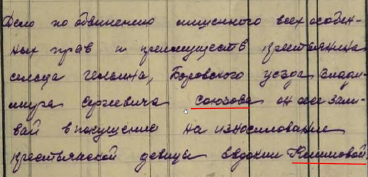 Дело по обвинению лишенного всех особен-
ных прав и преимуществ крестьянина
сельца Боровского уезда Влади-
мира Сергеевича Союзова он же Зали-
вай в покушение на изнасилование
крестьянской девицы Евдокии Климовой.